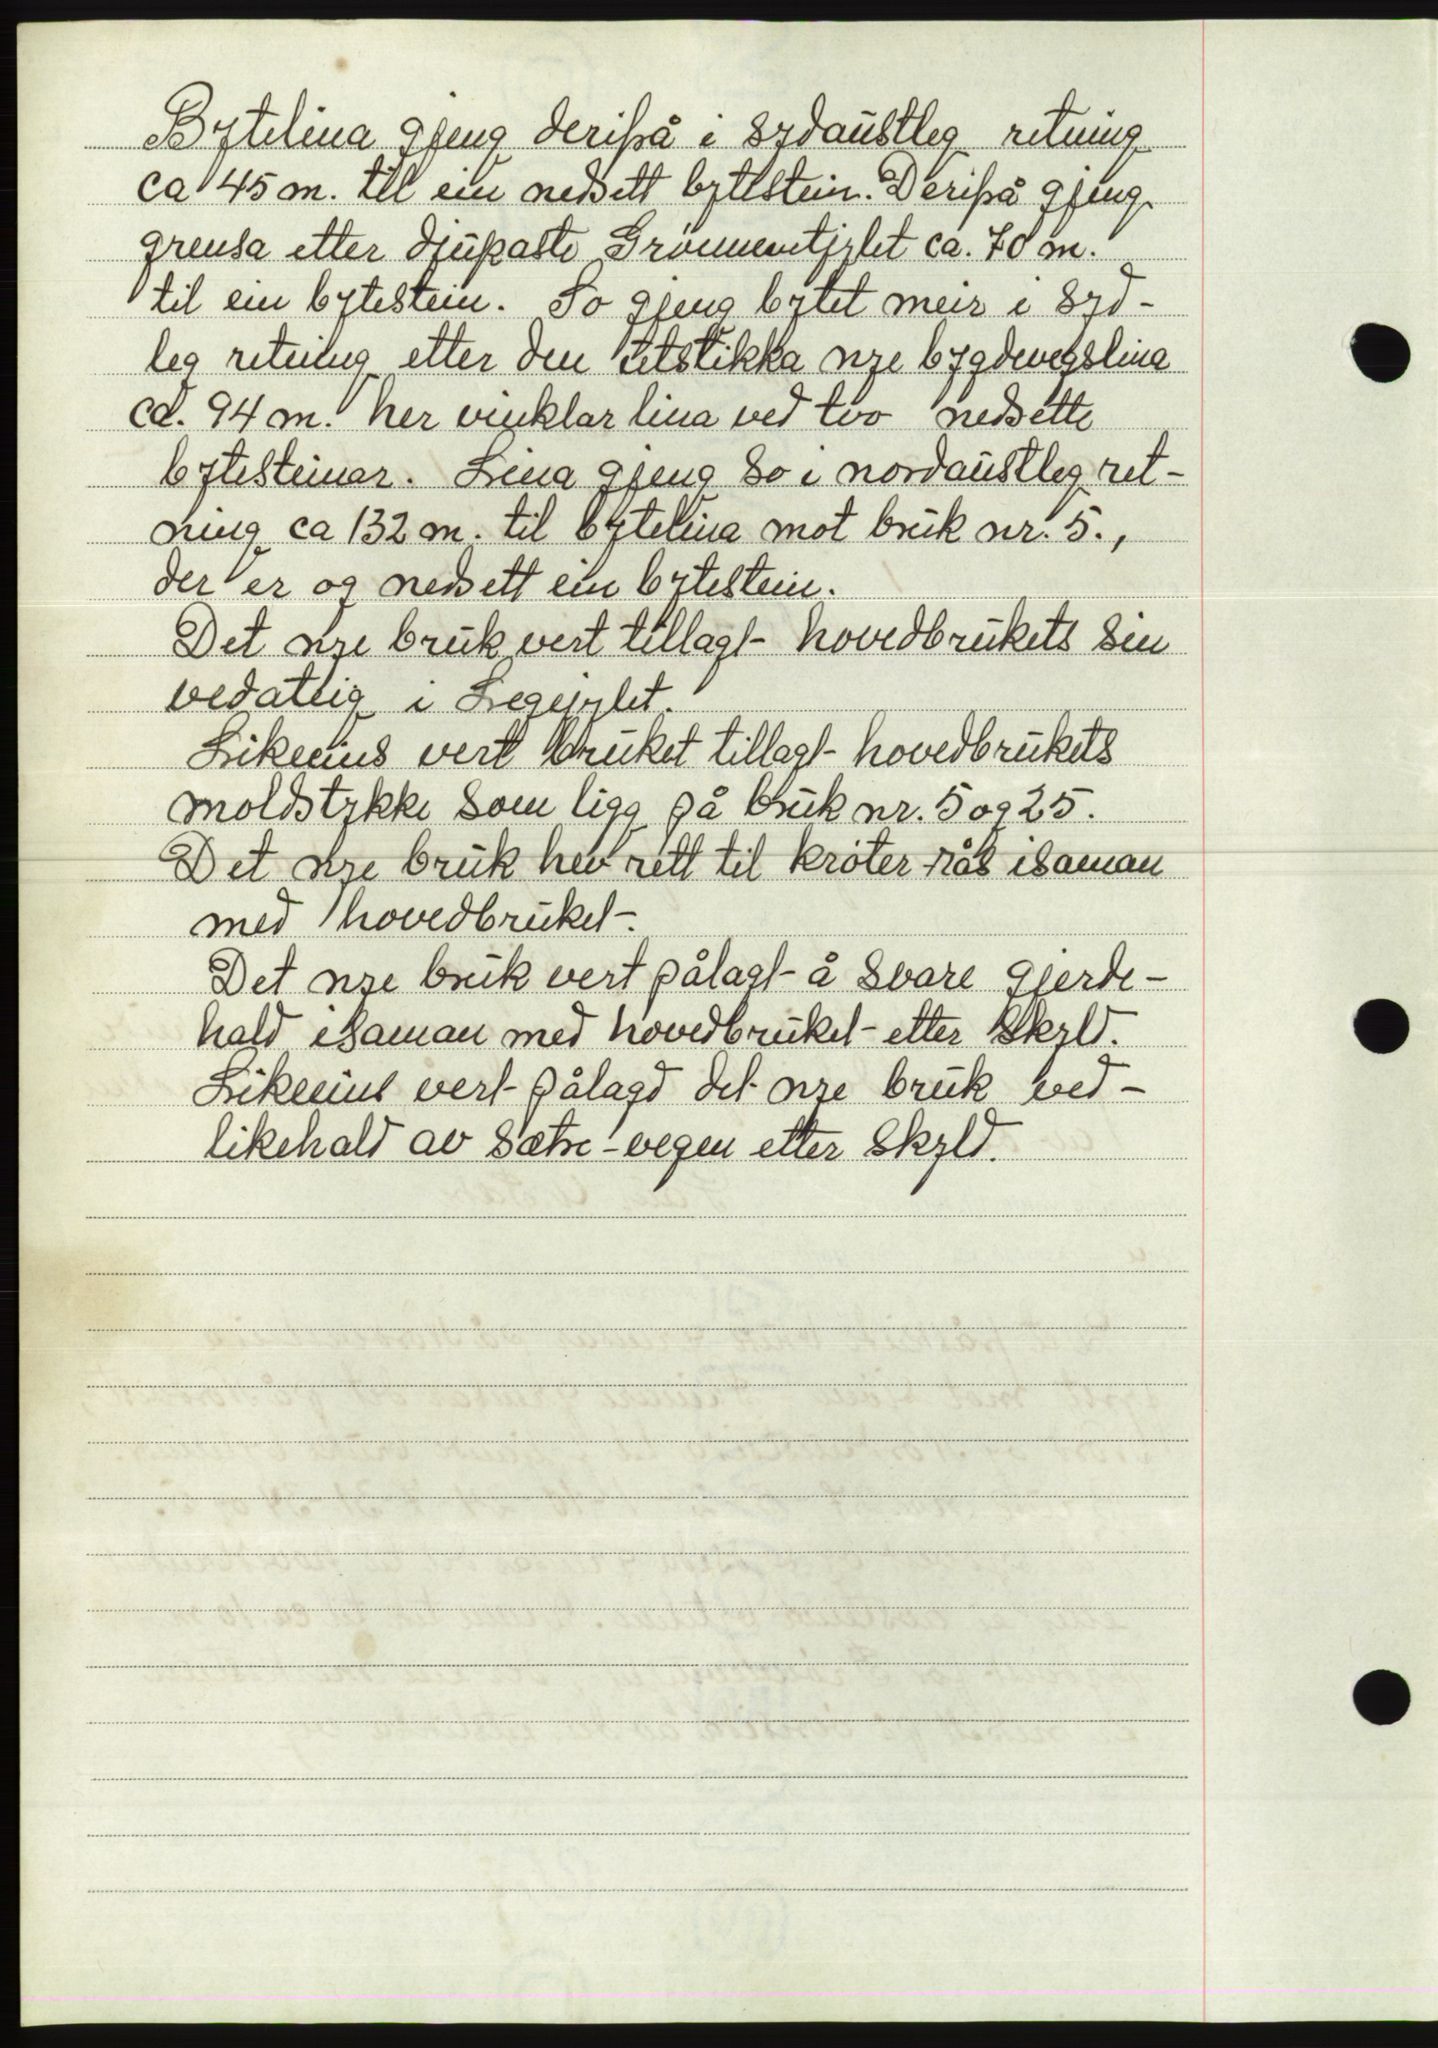 Bytelina gjeng deripå i sydaustleg retning
ca 45 m. til ein nedsett bytestein. Deripå gjeng
grensa etter djupaste Grönnevetjylet ca. 70 m.
til ein bytestein. So gjeng bytet meir i syd-
leg retning etter den utstikka nye bygdevegslina
ca. 94 m. her vinklar lina ved tvo nedsette
bytesteinar. Lina gjeng so i nordaustleg ret-
ning ca 132 m. til bytelina mot bruk nr. 5.,
der er og nedsett ein bytestein.
Det nye bruk vert tillagt hovedbrukets sin
vedateig i Legejylet.
Likeeins vert bruket tillagt hovedbrukets
moldstykke som ligg på bruk nr. 5 og 25.
Det nye bruk hev rett til kröter-rås isaman
med hovedbruket.
Det nye bruk vert pålagt å svare gjerde-
hald isaman med hovedbruket etter skyld.
Likeeins vert pålagd det nye bruk ved-
likehald av sætre-vegen etter skyld.